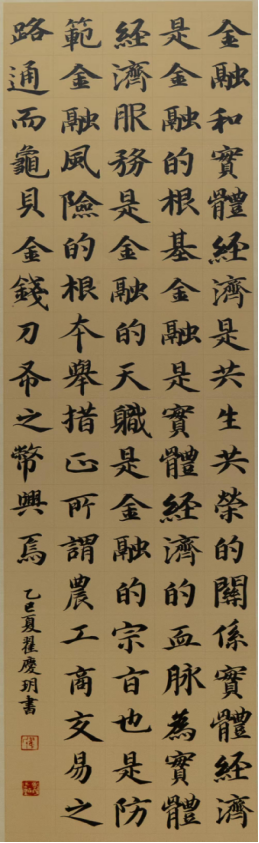 金融和實體經濟是共生共榮的關係實體經濟
是金融的根基金融是實體經濟的血脉為實體
經濟服務是金融的天職是金融的宗旨也是防
範金融風險的根本舉措正所謂農工商交易之
路通而龜貝金錢刀布之幣興焉
乙巳夏翟慶玥書